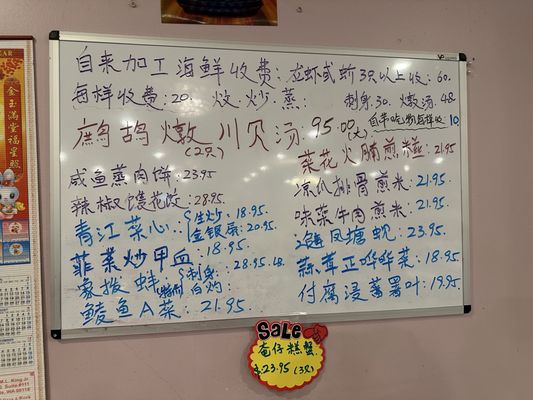 自来加工海鲜收费: 龙虾或蚧3只以上收: 60.
每样收费: 20. 炆. 炒. 蒸: 刺身. 30. 燉汤. 48
鹧鸪燉川贝汤. 95.00(大)
(2只)
自带 10
菜花火腩煎 21.95
咸鱼蒸肉饼: 23.95
凉瓜排骨煎米. 21.95.
辣椒 28.95.
味菜牛肉煎米. 21.95.
青江菜心: 生炒. 18.95.
金银 20.95.
凤塘蚬. 23.95.
韮菜炒甲血 18.95.
蒜茸正 菜. 18.95
象拔蚌: 刺身. 28.95.
白灼:
付腐浸蕃薯叶. 19.95.
鲮鱼A菜: 21.95
SALE
奄仔糕蟹
$23.95 (3只)
金玉满堂福星照
M.L. King Jr.